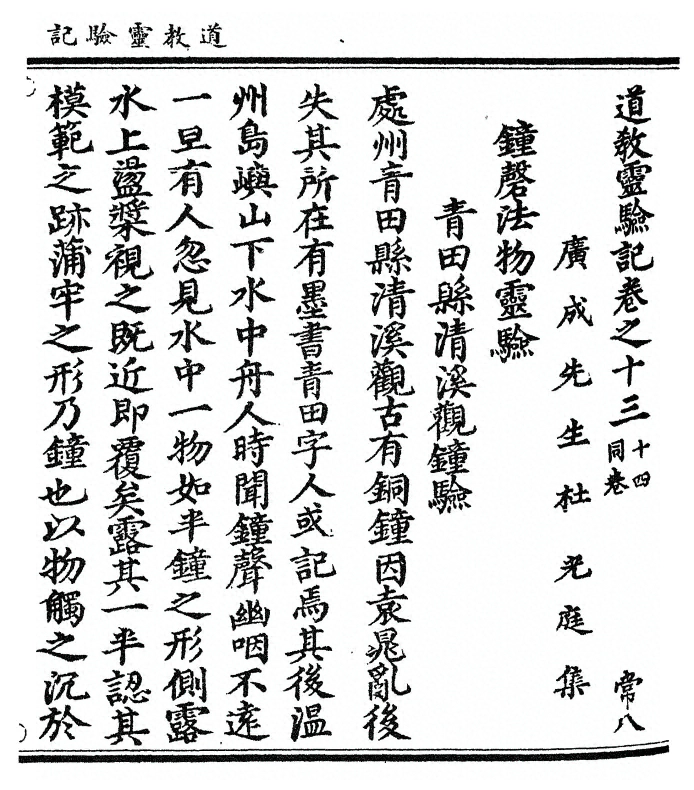 道教靈驗記
道教靈驗記卷之十三 十四同卷 常八
廣成先生杜光庭集
鐘磬法物靈驗
青田縣清溪觀鐘驗
處州青田縣清溪觀古有銅鐘因袁晁亂後
失其所在有墨書青田字人或記焉其後溫
州島嶼山下水中舟人時聞鐘聲幽咽不遠
一旦有人忽見水中一物如半鐘之形側露
水上盪槳視之既近即覆矣露其一半認其
模範之跡蒲牢之形乃鐘也以物觸之沉於